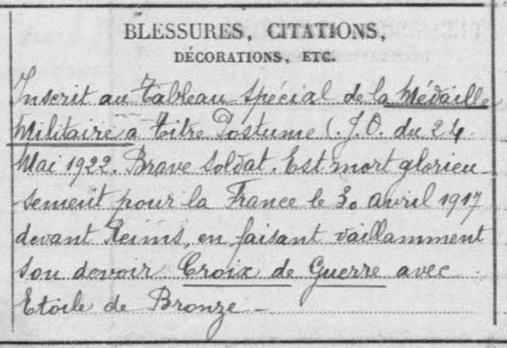 BLESSURES, CITATIONS,
DÉCORATIONS, ETC.
Inscrit au tableau spécial de la Médaille
Militaire a titre Postume (J.O. du 24
Mai 1922. Brave soldat. Est mort glorieu-
sement pour la France le 30 avril 1917
devant Reims, en faisant vaillamment
son devoir Croix de Guerre avec
Etoile de Bronze -